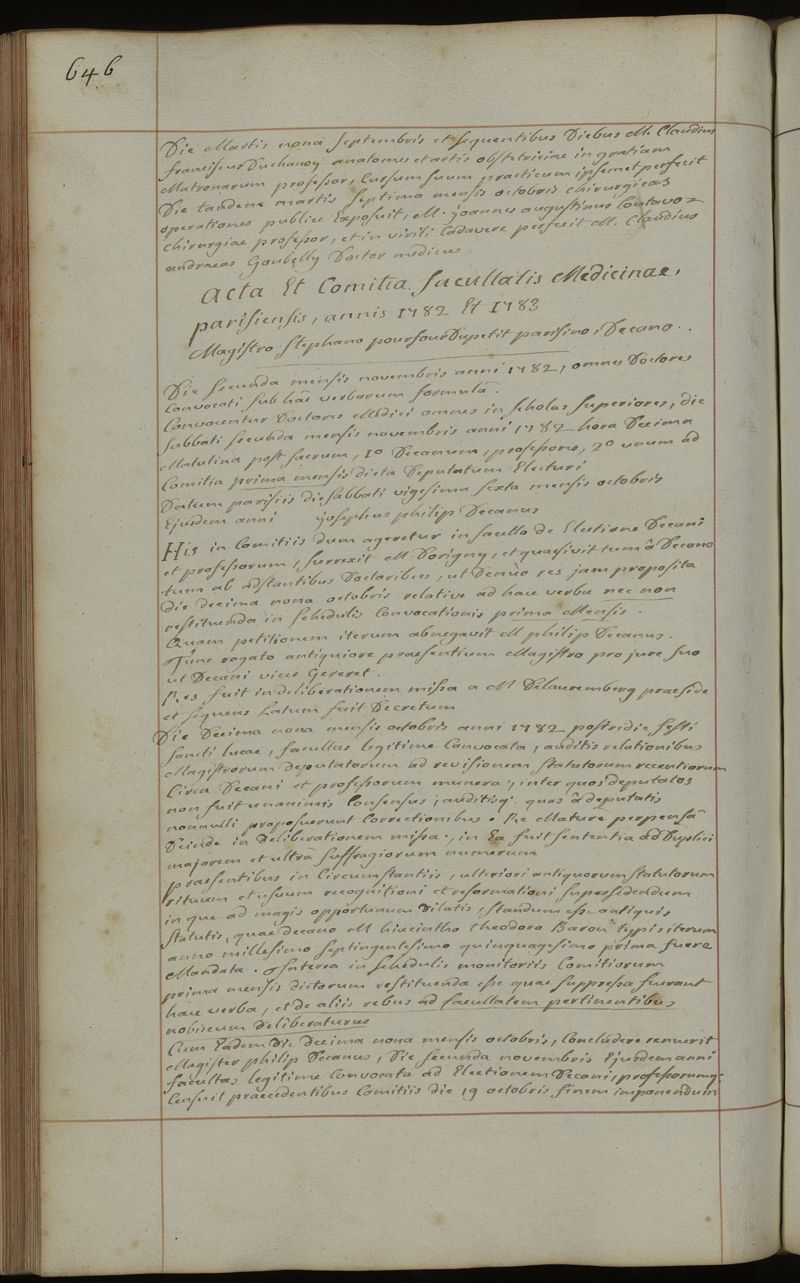 646
Die Martis nona septembris et sequentibus Diebus M. Claudius
franciscus Duchanoy anatomes et artis obstetriciae in gratiam
Matronarum professor, Cursum suum practicum ipsemet perfecit
Die tandem martis septima mensis octobris chirurgicas
operationes publice Exposuit, M. joannes augustinus Coutavoz
chirurgiae professor, et in virili Cadavere perfecit M. Claudius
andraeas Goubelly Doctor medicus.
Acta Et Comitia facultatis Medicinae,
parisiensis, annis 1782 Et 1783
Magistro Stephano pourfour Dupetit parisino, Decano.
Die secunda mensis novembris anni 1782, omnes Doctores
Convocati sub hâc verborum formulâ.
Convocentur Doctores Medici omnes in scholas superiores, die
sabbati secunda mensis novembris anni 1782 hora Decima
Matutina post sacrum, 1o Decanum, professores, 2o unum ad
Comitia prima mensis dicta Deputatum Electuri
Datum parisiis die sabbati vigesima sexta mensis octobris
Ejusdem anni josephus philip Decanus
His in Comitiis dum ageretur in sacello de Electione Decani
et professorum, surrexit M. Dorigny, et quaesivit tum â Decano
tum ab adstantibus Doctoribus, ut Denuo res jam proposita
die decima nona octobris relative ad haec verba nec non
restituenda in schedulis Convocationis prima Mensis.
Quam petitionem iterum abnegavit M philip Decanus.
Tunc rogato antiquiore praesentium Magistro pro jure suo
ut Decani vices Gereret.
Res fuit in deliberationem missa a M Delauremberg praeside
et sequens Latum fuit Decretum
Die Decima nona mensis octobris anni 1782 postridie festi
sancti lucae, facultas legitime Convocata, auditis relationibus
Magistrorum Deputatorum ad revisionem statutorum recentiorum
Circa Decani et professorum munera, inter quos deputatos
non fuit unanimis Consensus; auditisq. quas â deputatis
nonnulli proposuerunt Correctionibus. Re Mature perpensâ
Deinde in Deliberationem missa, in Ea fuit sententia ad Duplici
majorem et ultrâ suffragiorum numerum
praesentibus in Circumstantiis, ulteriori antiquorum statutorum
rituum et usuum recognitioni et reformationi supersedendum
in que ad magis opportunum dilatis, standum esse antiquis
statutis, quae decano M hiacintho theodoro Baron typis iterum
anno millesimo septingentesimo quinquagesimo primo fuere
Mandata. Interea in schedulis monitoriis Comitiorum
prima mensis dictorum restituenda esse quae suppressa fuerant
haec verba, et de aliis rebus ad facultatem pertinentibus
nobiscum Deliberaturus
Cum Eadem Die decima nona mensis octobris, Concludere renuerit
Magister philip Decanus, Die secunda novembris Ejusdem anni
facultas legitime Convocata ad Electionem Decani, professorumq.
Censuit praecedentibus Comitiis die 19 octobris finem imponendum